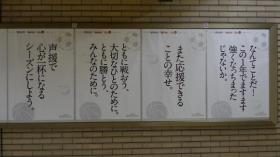 なんてことだ！
この1年でますます
強くなっちまった
じゃないか。
また応援できる
ことの幸せ。
ともに戦おう、
大切なひとのために。
ともに勝とう、
みんなのために。
声援で
心が一杯になる
シーズンにしよう。